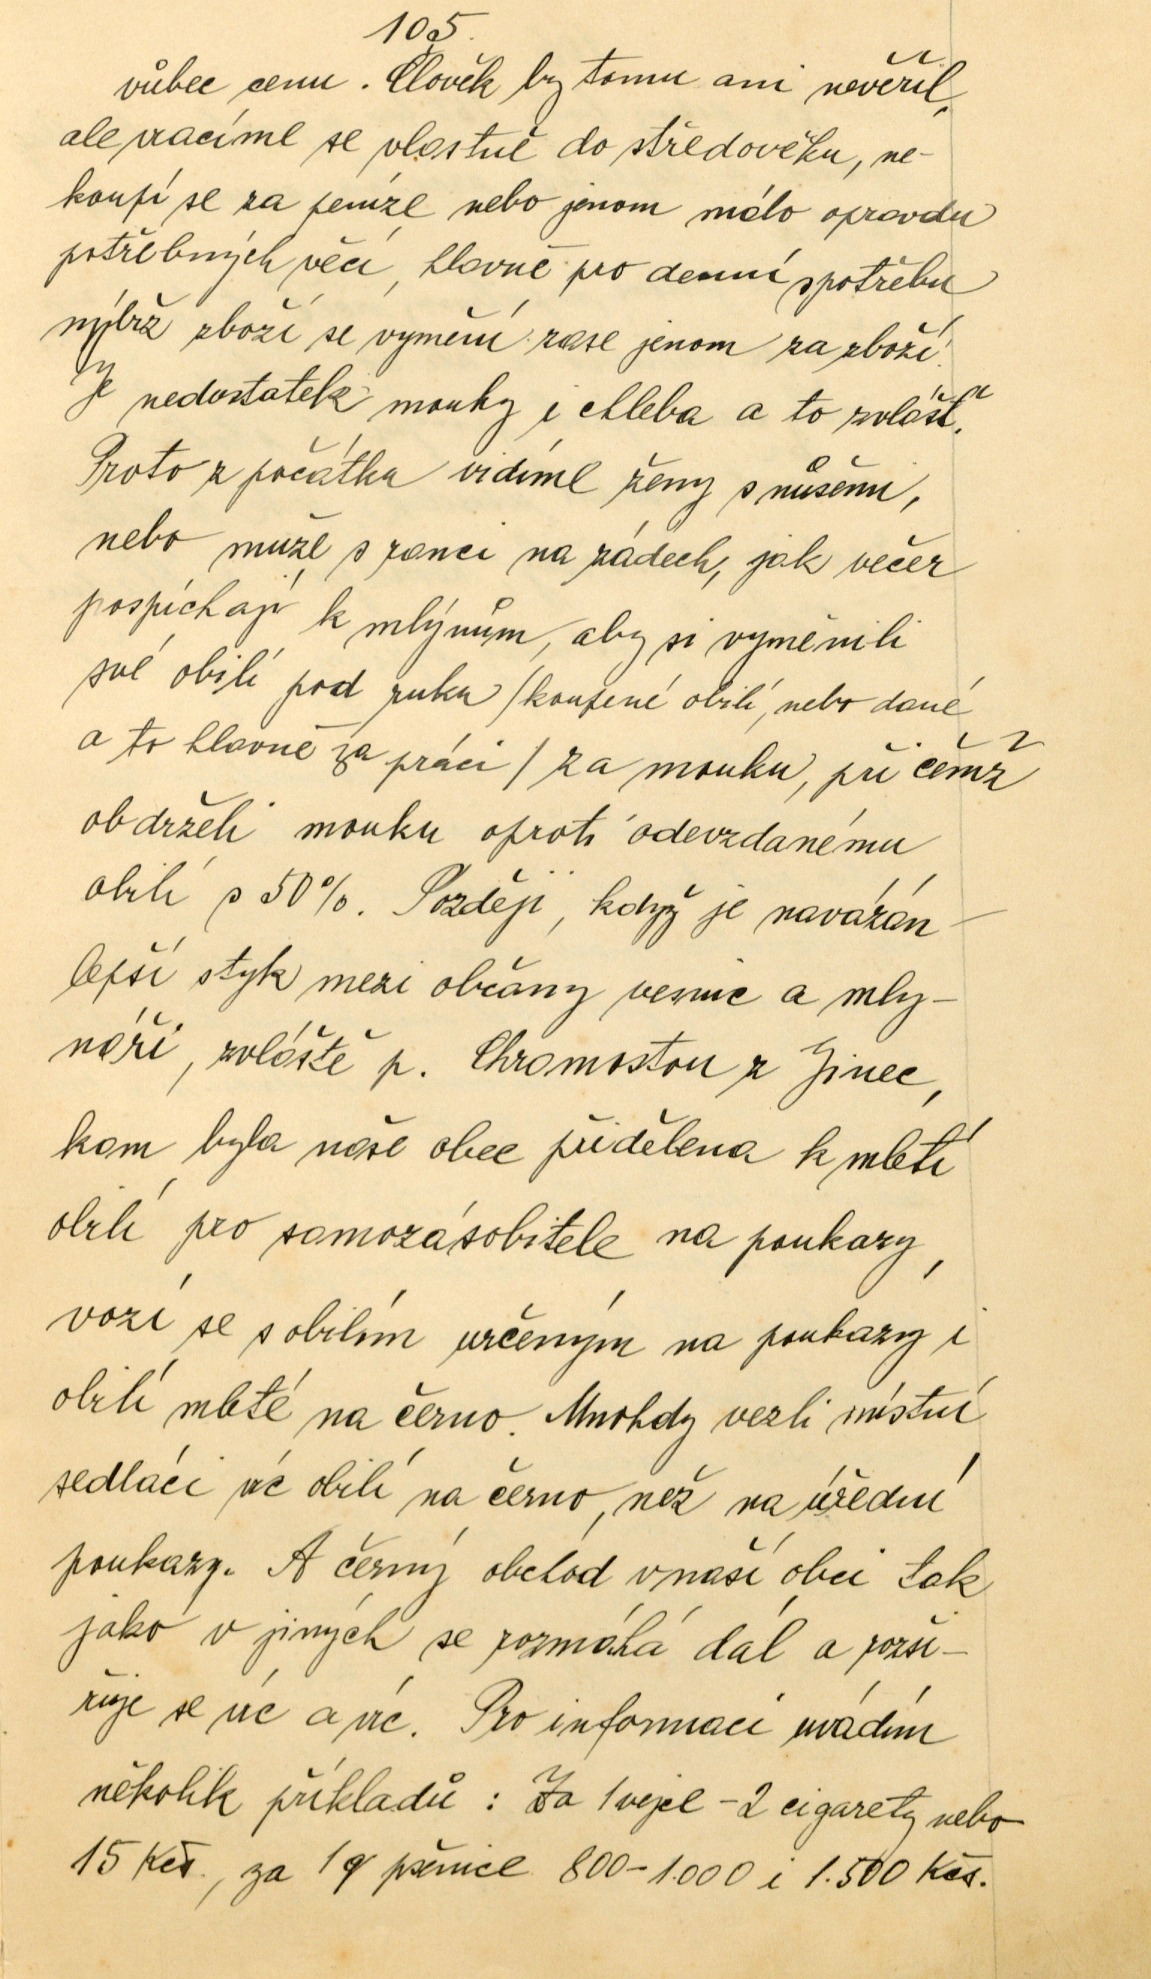 105.
vůbec cenu. Člověk by tomu ani nevěřil,
ale vracíme se vlastně do středověku, ne-
koupí se za peníze nebo jenom málo opravdu
potřebných věcí, hlavně pro denní spotřebu
nýbrž zboží se vymění zase jenom za zboží.
Je nedostatek mouky i chleba a to zvlášť.
Proto z počátku vidíme ženy s nůšemi,
nebo muže s ranci na zádech, jak večer
pospíchají k mlýnům, aby si vyměnili
své obilí pod ruku /koupené obilí, nebo dané
a to hlavně za práci/ za mouku, při čemž
obdrželi mouku oproti odevzdanému
obilí s 50%. Později, když je navázán
lepší styk mezi občany vesnic a mly-
náři, zvláště p. Chramostou z Jinec,
kam byla naše obec přidělena k mletí
obilí pro samozásobitele na poukazy,
vozí se s obilím určeným na poukazy i
obilí mleté na černo. Mnohdy vezli místní
sedláci víc obilí na černo, než na úřední
poukazy. A černý obchod v naší obci tak
jako v jiných se rozmáhá dál a rozši-
řuje se víc a víc. Pro informaci uvádím
několik příkladů: Za 1 vejce - 2 cigarety nebo
15 Kčs., za 1 q pšenice 800-1.000 i 1.500 Kčs.